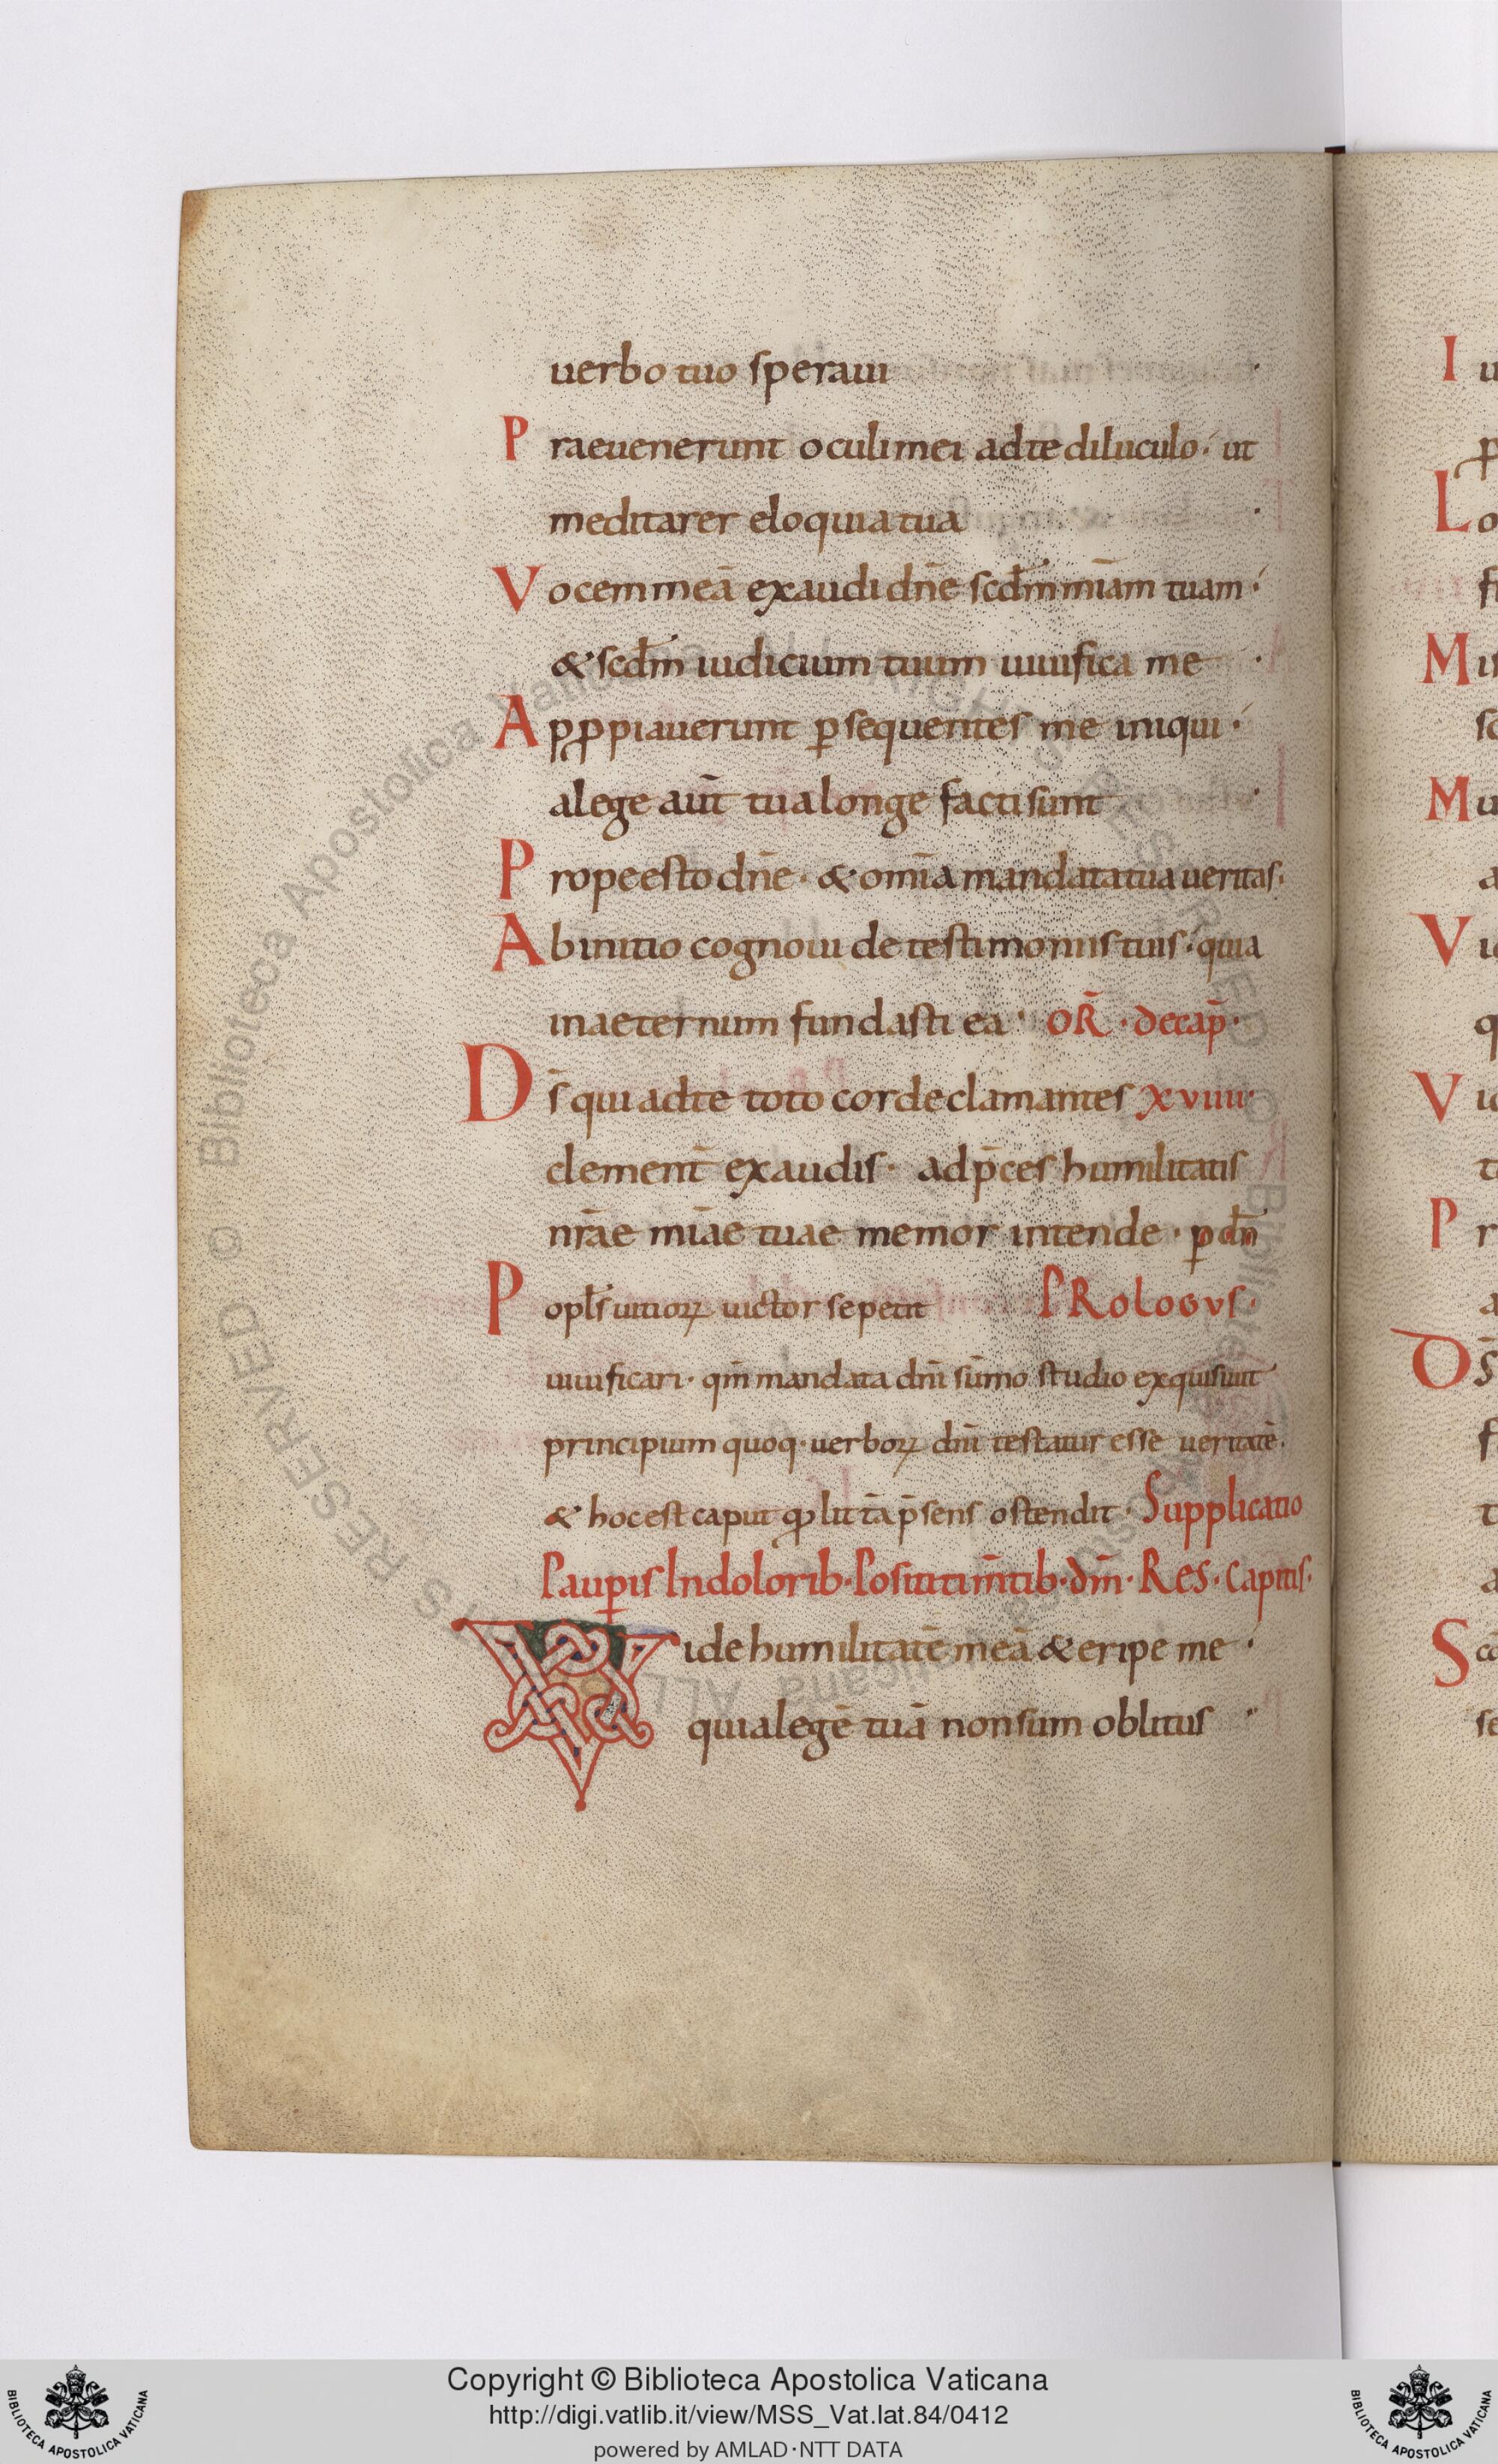 uerbo tuo speraui
Praeuenerunt oculi mei ad te diluculo· ut
meditarer eloquia tua ·
Vocem meā exaudi dn̄e scdm̄ miā̄m tuam·
& scdm̄ iudicium tuum uiuifica me ·
Appropiauerunt ꝑsequentes me iniqui·
a lege aut̄ tua longe facti sunt ·
Prope esto dn̄e· & omīa mandata tua ueritas·
Ab initio cognoui de testimoniis tuis· quia
in aeternum fundasti ea· OR̄· de cap̄·
Ds̄ qui ad te toto corde clamantes xviiii·
clement̄ exaudis· ad p̄ces humilitatis
nr̄ae mīae tuae memor intende· ꝑ dn̄
Popls̄ uitioꝝ uictor se petit PROLOGVS·
uiuificari· qm̄ mandata dn̄i sūmo studio exquisiuit
principium quoq· uerboꝝ dn̄i testatur esse ueritatē·
& hoc est caput ꝙ litt̄a p̄sens ostendit· Supplicatio
Pauꝑis In dolorib· Positi tim̄tib· dm̄· Res· Capitis·
Vide humilitatē meā & eripe me·
quia legē tuā non sum oblitus
I u
L o
M is
M u
V i
V i
P r
Ds̄
S cd
Copyright © Biblioteca Apostolica Vaticana
http://digi.vatlib.it/view/MSS_Vat.lat.84/0412
powered by AMLAD·NTT DATA
BIBLIOTECA APOSTOLICA VATICANA
BIBLIOTECA APOSTOLICA VATICANA
© Biblioteca Apostolica Vaticana ALL RIGHTS RESERVED